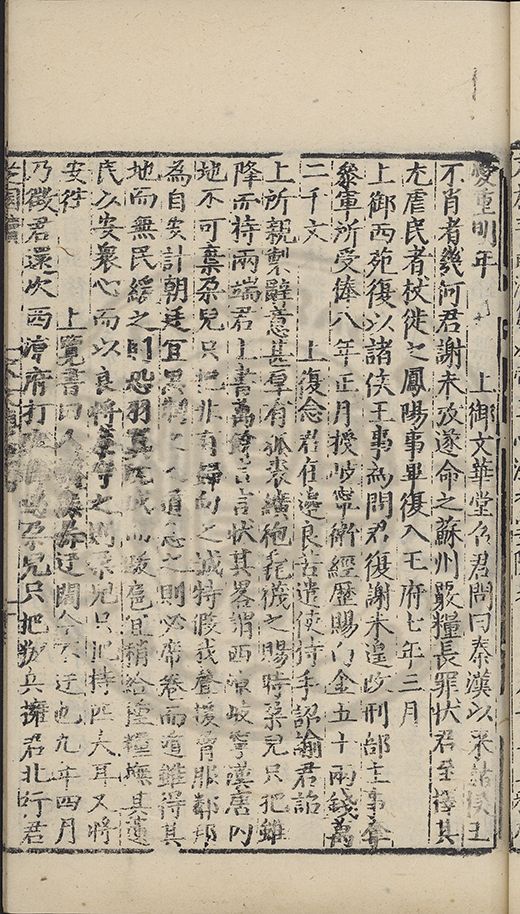 愛重明年 上御文華堂召君問曰秦漢以來諸侯王
不肖者幾何君謝未攷遂命之蘇州覈糧長罪狀君至擇其
尤虐民者杖徙之鳳陽事畢復入王府七年三月
上御西苑復以諸侯王事為問君復謝未遑改刑部主事奪
參軍所受俸八年正月授岐寧衛經歷賜白金五十兩錢萬
二千文 上復念君在邊良苦遣使侍手詔諭君詔
上所親製辭意甚厚有狐裘纊袍毳韈之賜時朶兒只把雖
降而持兩端君上書萬餘言言狀其畧謂西凉岐寧漢唐內
地不可棄朶兒只把非有歸向之誠特假我聲援脅服鄰邦
為自安計朝廷宜思制之之道急之則必席卷而遁雖得其
地而無民緩之則恐羽翼既成而跋扈宜稍給種糧撫其遺
民以安衆心而以良將 守之則朶兒只把特匹夫耳又將
安往 上覽書曰人 迂闊今不迂也九年四月
乃徵君還次西凉府打 朶兒只把叛兵擁君北行君